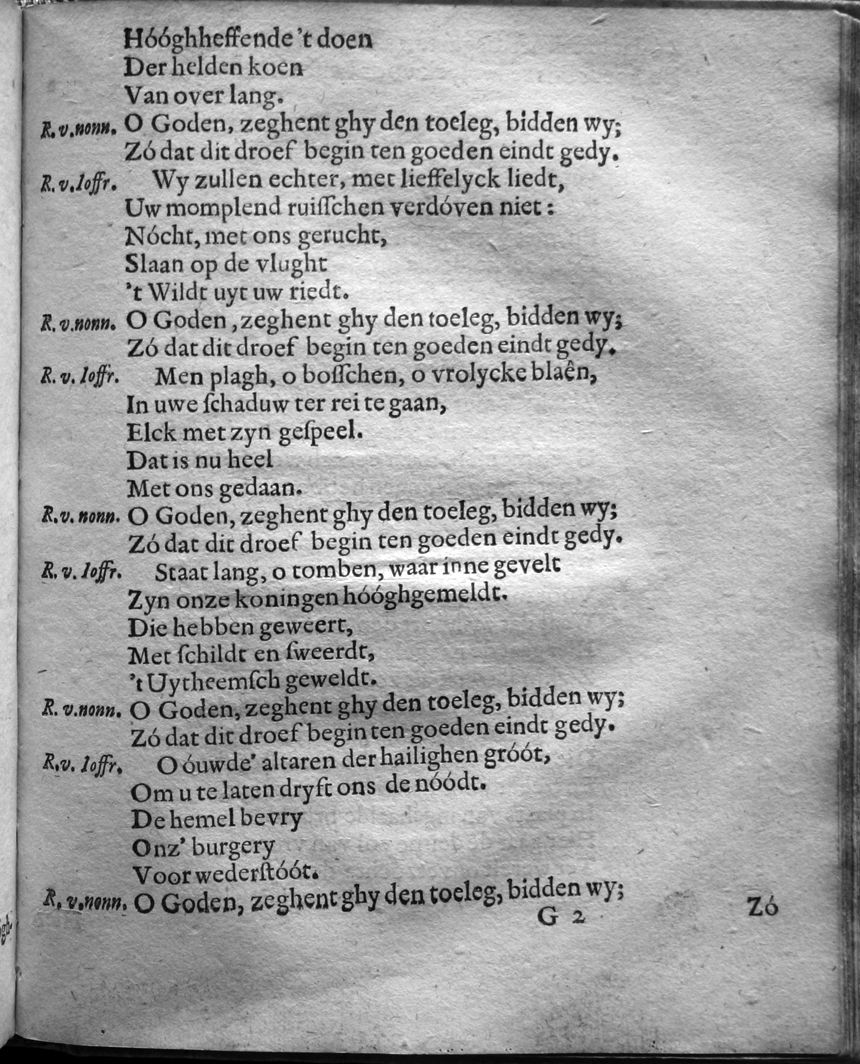 Hóóghheffende 't doen
Der helden koen
Van over lang.
R. v. nonn. O Goden, zeghent ghy den toeleg, bidden wy;
Zó dat dit droef begin ten goeden eindt gedy.
R. v. Ioffr. Wy zullen echter, met lieffelyck liedt,
Uw momplend ruisschen verdóven niet:
Nócht, met ons gerucht,
Slaan op de vlught
't Wildt uyt uw riedt.
R. v. nonn. O Goden, zeghent ghy den toeleg, bidden wy;
Zó dat dit droef begin ten goeden eindt gedy.
R. v. Ioffr. Men plagh, o bosschen, o vrolycke blaên,
In uwe schaduw ter rei te gaan,
Elck met zyn gespeel.
Dat is nu heel
Met ons gedaan.
R. v. nonn. O Goden, zeghent ghy den toeleg, bidden wy;
Zó dat dit droef begin ten goeden eindt gedy.
R. v. Ioffr. Staat lang, o tomben, waar inne gevelt
Zyn onze koningen hóóghgemeldt.
Die hebben geweert,
Met schildt en sweerdt,
't Uytheemsch geweldt.
R. v. nonn. O Goden, zeghent ghy den toeleg, bidden wy;
Zó dat dit droef begin ten goeden eindt gedy.
R. v. Ioffr. O óuwde' altaren der hailighen gróót,
Om u te laten dryft ons de nóódt.
De hemel bevry
Onz' burgery
Voor wederstóót.
R. v. nonn. O Goden, zeghent ghy den toeleg, bidden wy;
G 2 Zó